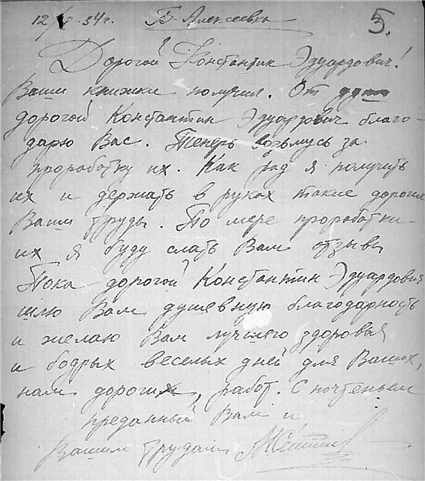 12/V-34г. Б-Алексеевка 5.
Дорогой Константин Эдуардович!
Ваши книжки получил. От души
дорогой Константин Эдуардович благо-
дарю Вас. Теперь возьмусь за
проработку их. Как рад я получить
их и держать в руках такие дорогие
Ваши труды. По мере проработки
их я буду слать Вам отзывы
Пока дорогой Константин Эдуардович
шлю Вам душевную благодарность
и желаю Вам лучшего здоровья
и бодрых веселых дней для Ваших,
нам дорогих, работ. С почтеньем
преданный Вам и
Вашим трудам